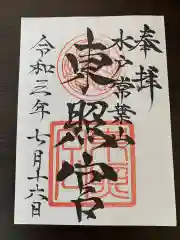 奉拝
水戸常葉山
東照宮
令和三年七月十六日